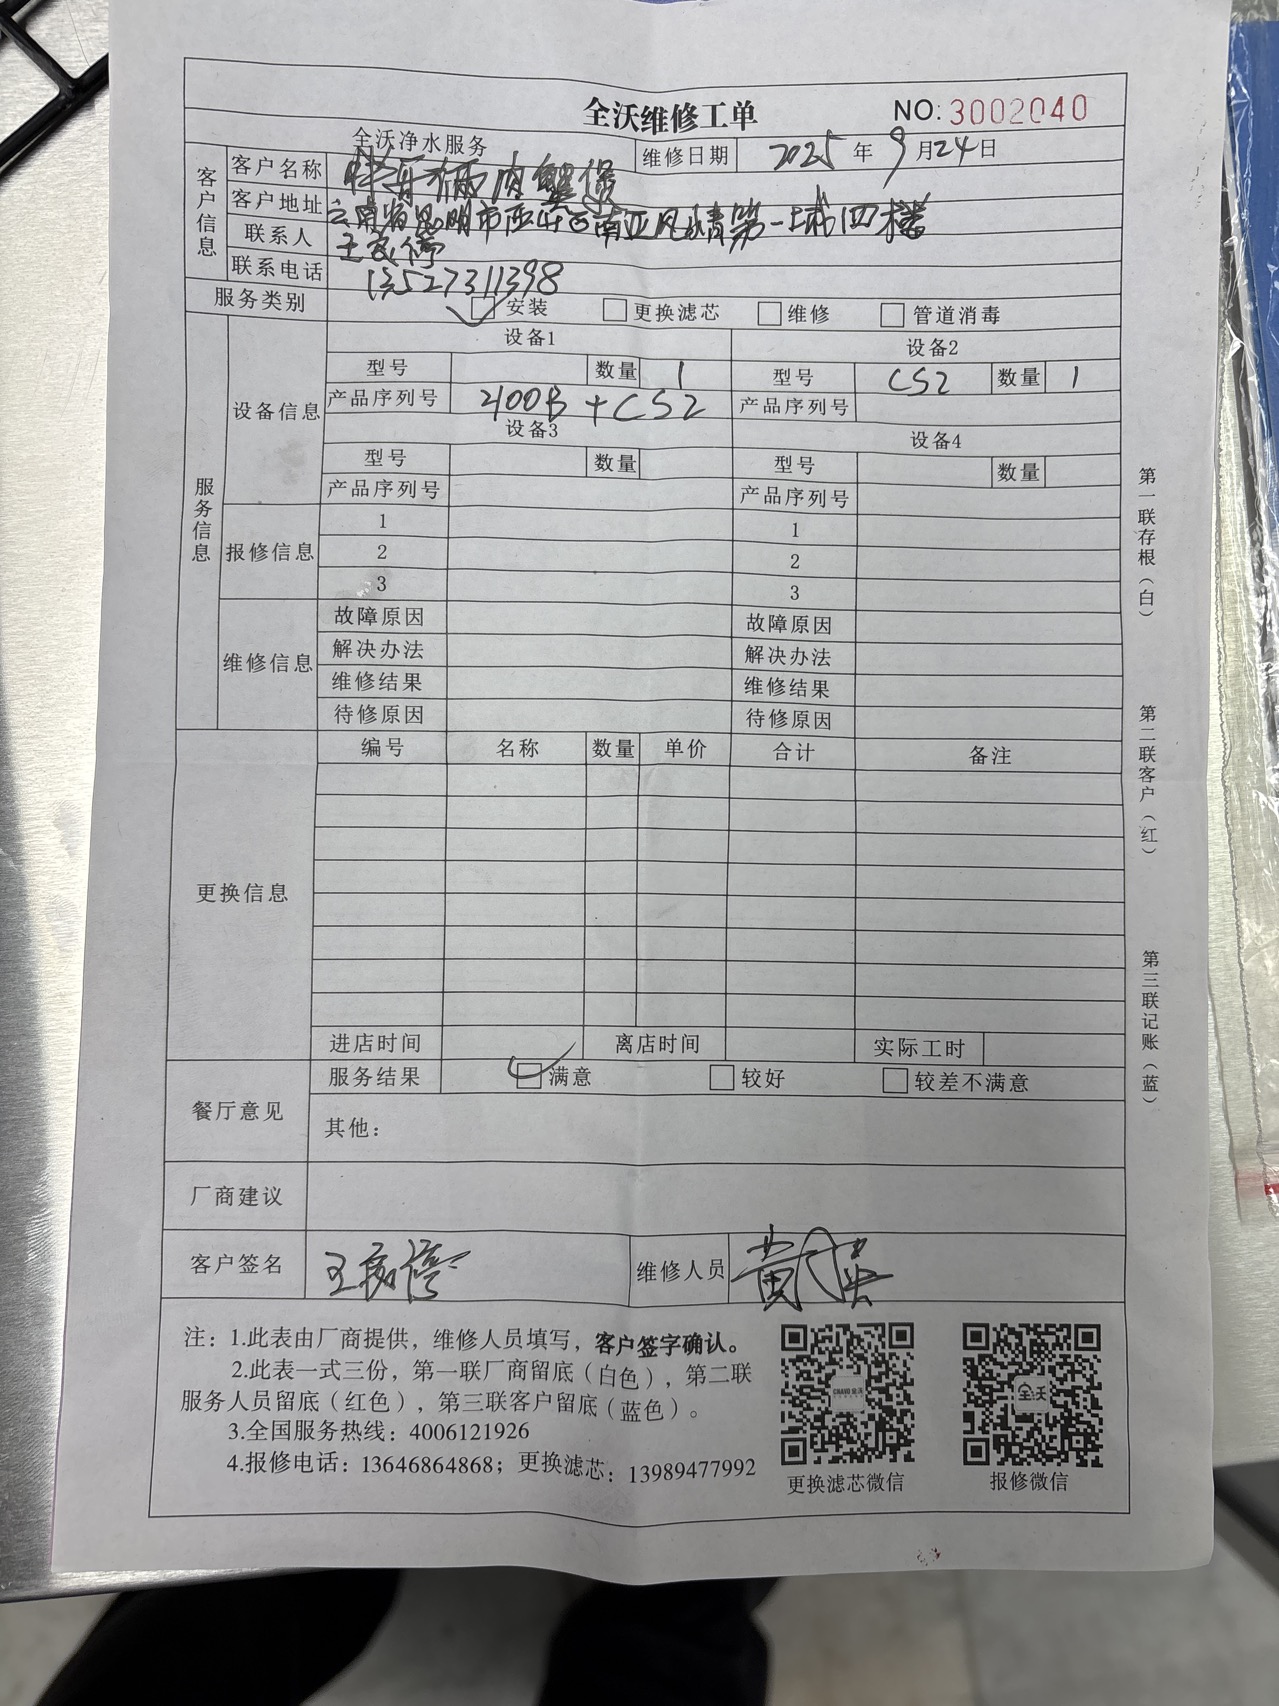 全沃维修工单
NO: 3002040
全沃净水服务
维修日期 2025 年 9 月 24 日
客户信息
客户名称 胖哥俩肉蟹煲
客户地址 云南省昆明市西山区南亚风情第一城四楼
联系人 王
联系电话 13527311398
服务类别 安装 更换滤芯 维修 管道消毒
服务信息
设备信息
设备1 设备2
型号 数量 1 型号 CS2 数量 1
产品序列号 400B + CS2 产品序列号
设备3 设备4
型号 数量 型号 数量
产品序列号 产品序列号
报修信息
1 1
2 2
3 3
维修信息
故障原因 故障原因
解决办法 解决办法
维修结果 维修结果
待修原因 待修原因
更换信息
编号 名称 数量 单价 合计 备注
进店时间 离店时间 实际工时
餐厅意见
服务结果 满意 较好 较差不满意
其他：
厂商建议
客户签名 王 维修人员 黄
注：1.此表由厂商提供，维修人员填写，客户签字确认。
2.此表一式三份，第一联厂商留底（白色），第二联
服务人员留底（红色），第三联客户留底（蓝色）。
3.全国服务热线：4006121926
4.报修电话：13646864868；更换滤芯：13989477992
全沃
更换滤芯微信 报修微信
第一联存根（白）
第二联客户（红）
第三联记账（蓝）